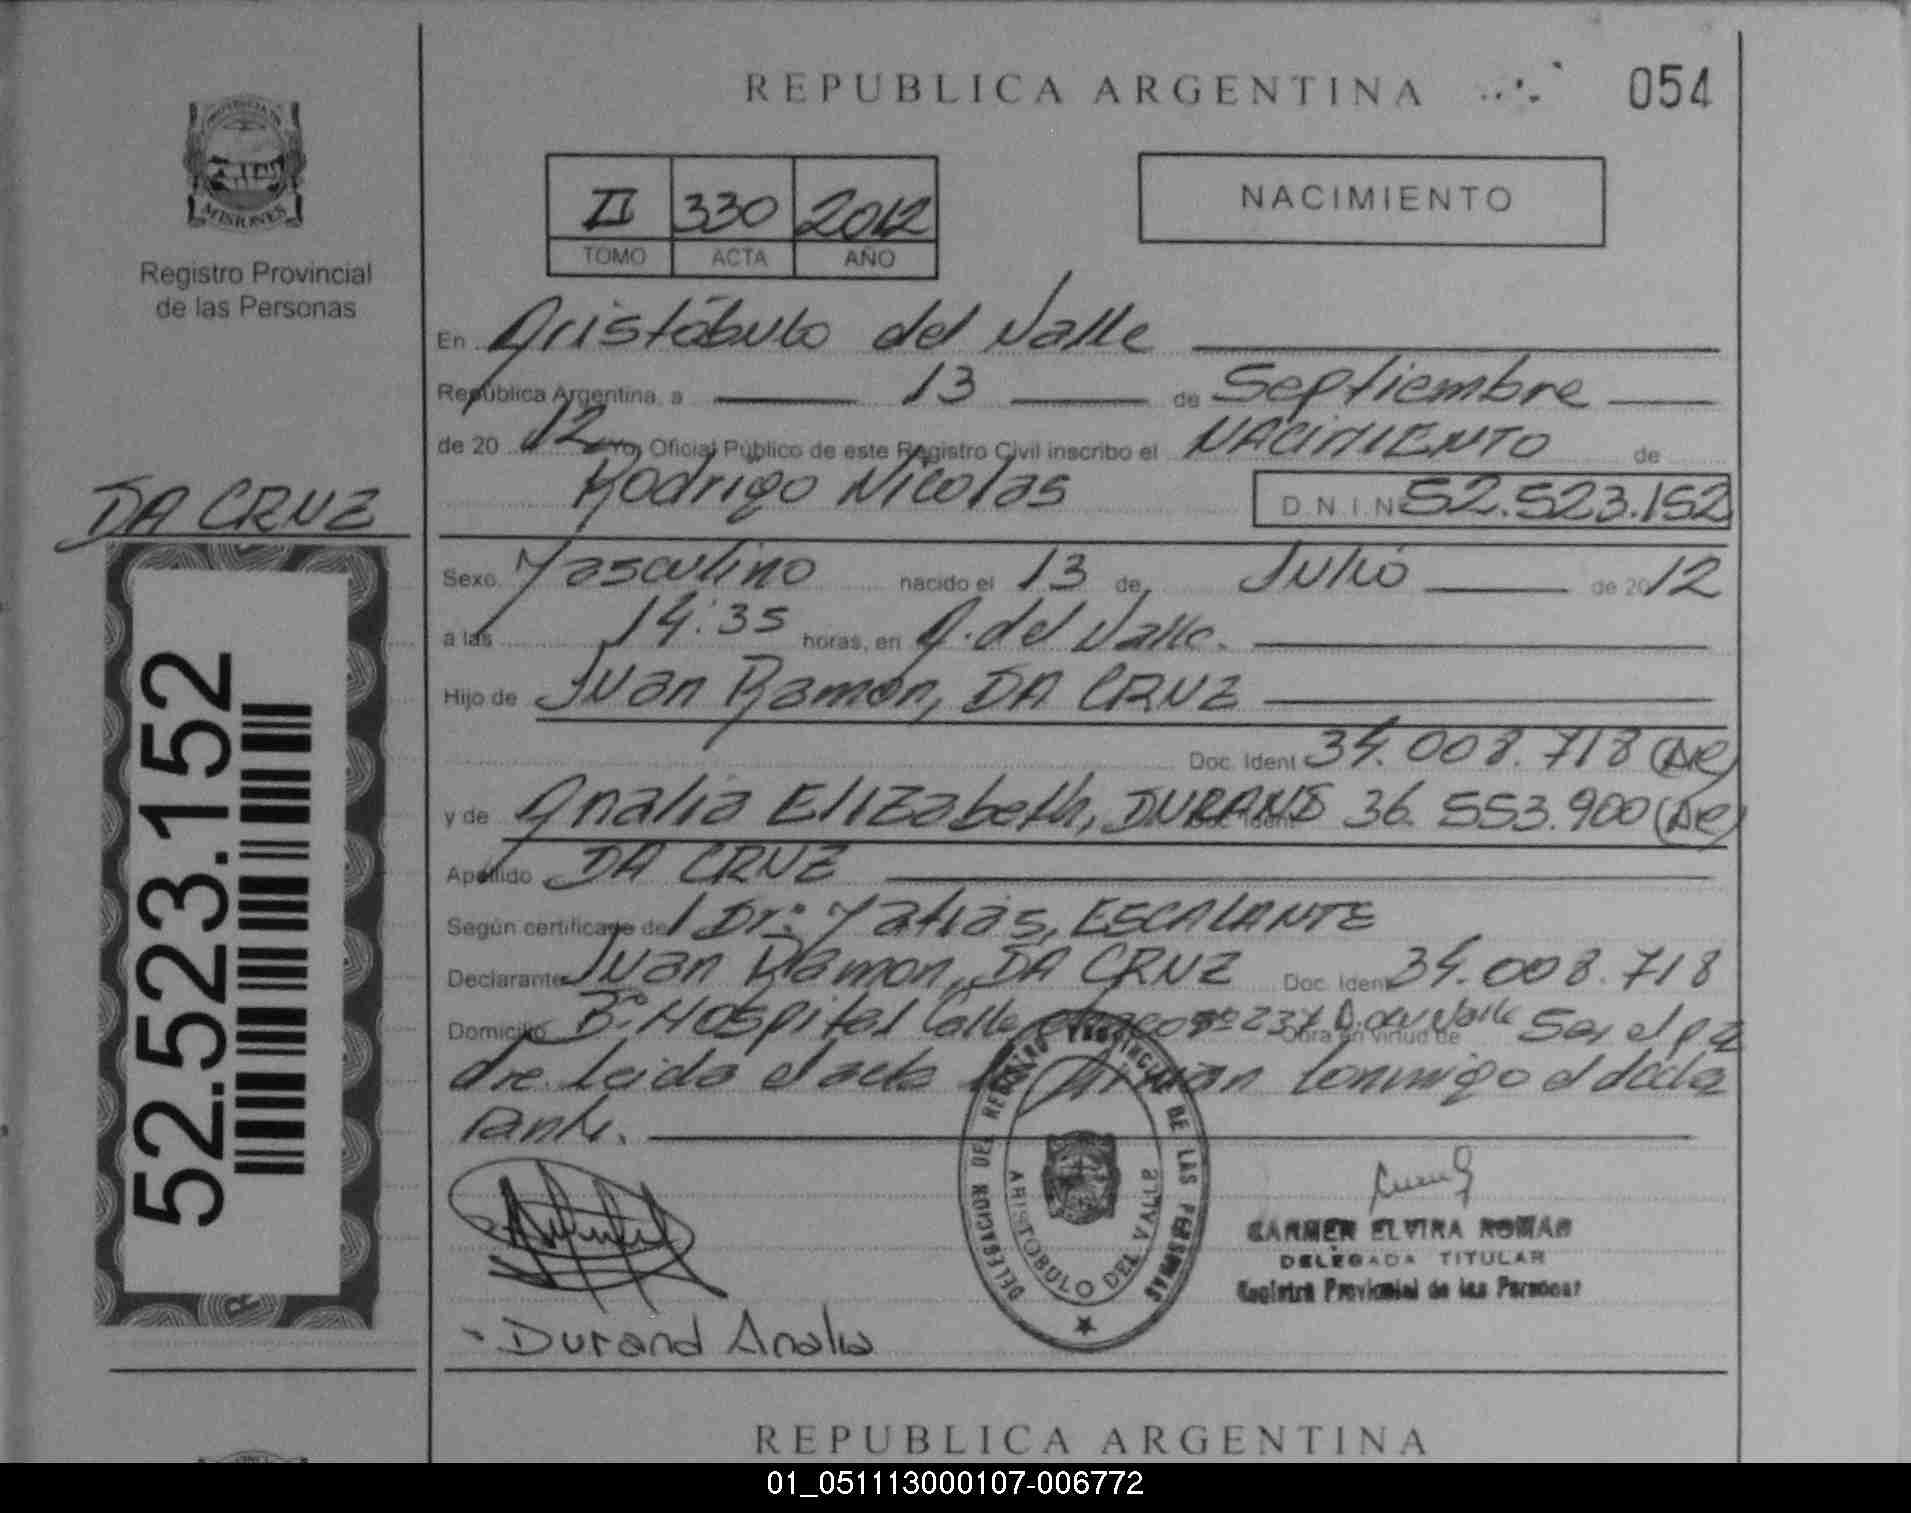 REPUBLICA ARGENTINA
054
PROVINCIA DE
MISIONES
Registro Provincial
de las Personas
II 330 2012
TOMO ACTA AÑO
NACIMIENTO
En Aristóbulo del Valle
República Argentina, a 13 de Septiembre
de 20 12 Yo, Oficial Público de este Registro Civil inscribo el NACIMIENTO de
Rodrigo Nicolas D.N.I.N 52.523.152
DA CRUZ
Sexo Masculino nacido el 13 de Julio de 2012
a las 14:35 horas, en A. del Valle.
Hijo de Juan Ramon, DA CRUZ
Doc. Ident 34.008.718 (AR)
y de Analia Elizabeth, DURAND Doc. Ident 36.553.900 (AR)
Apellido DA CRUZ
Según certificado de l Dr: Matias, ESCALANTE
Declarante Juan Ramon, DA CRUZ Doc. Ident 34.008.718
Domicilio Bº Hospital Calle nº 237 A. del Valle Obra en virtud de Ser el pa
dre leida el acta firman conmigo el decla
rante.
52.523.152
DELEGACION DEL REGISTRO PROVINCIAL DE LAS PERSONAS
ARISTOBULO DEL VALLE
CARMEN ELVIRA ROMAO
DELEGADA TITULAR
Registro Provincial de las Personas
- Durand Analia
REPUBLICA ARGENTINA
01_051113000107-006772